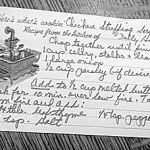 Here's what's cookin' Chicken Stuffing
Recipe from the kitchen of
Chop together until fine
1 cup celery, stalks & leaves
1 large onion
1/2 cup parsley if desired
Add to 1/2 cup melted butter
for 10 min. over low fire.
from fire and add:
thyme 1/8 tsp. pepper
tsp. salt